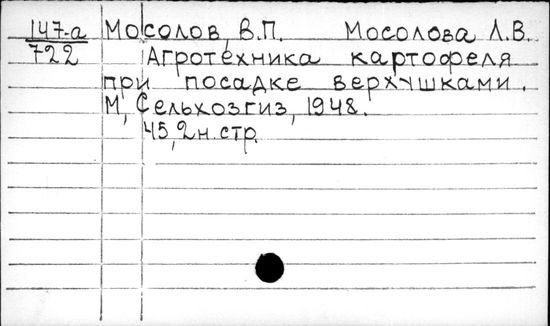 147-а Мосолов, В.П. Мосолова Л.В.
722 Агротехника картофеля
при посадке верхушками.
М, Сельхозгиз, 1948.
45, 2 н. стр.